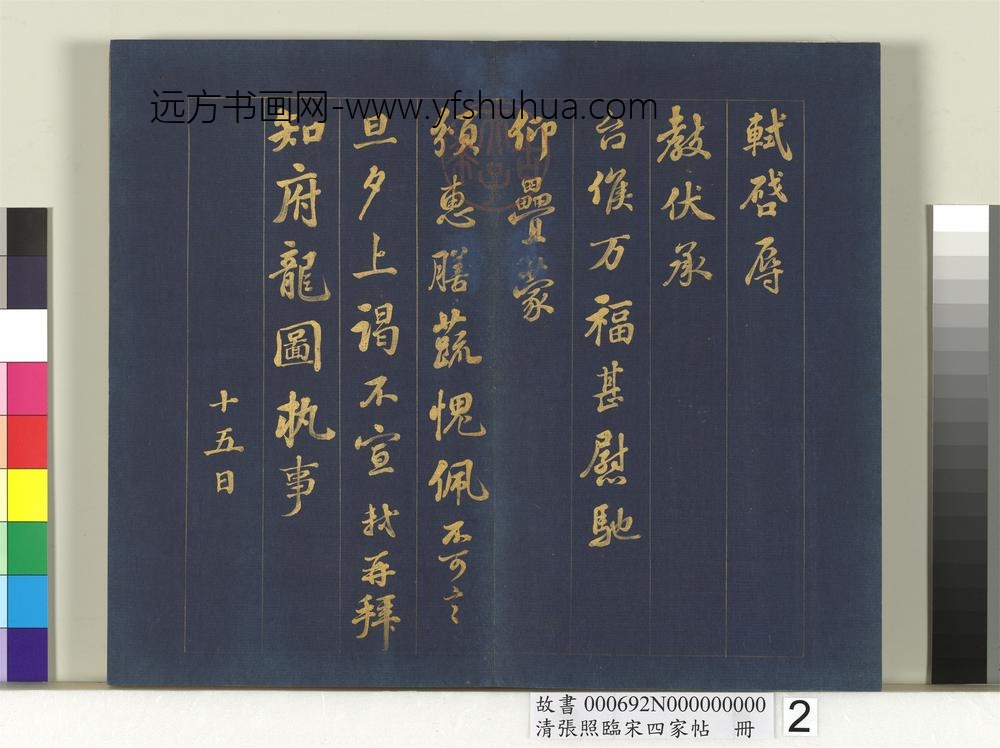 远方书画网-www.yfshuhua.com
軾啓辱
教伏承
台候万福甚慰馳
仰疊蒙
頒惠膳蔬愧佩不可言
旦夕上謁不宣軾再拜
知府龍圖執事
十五日
故書 000692N000000000
清張照臨宋四家帖 冊
2